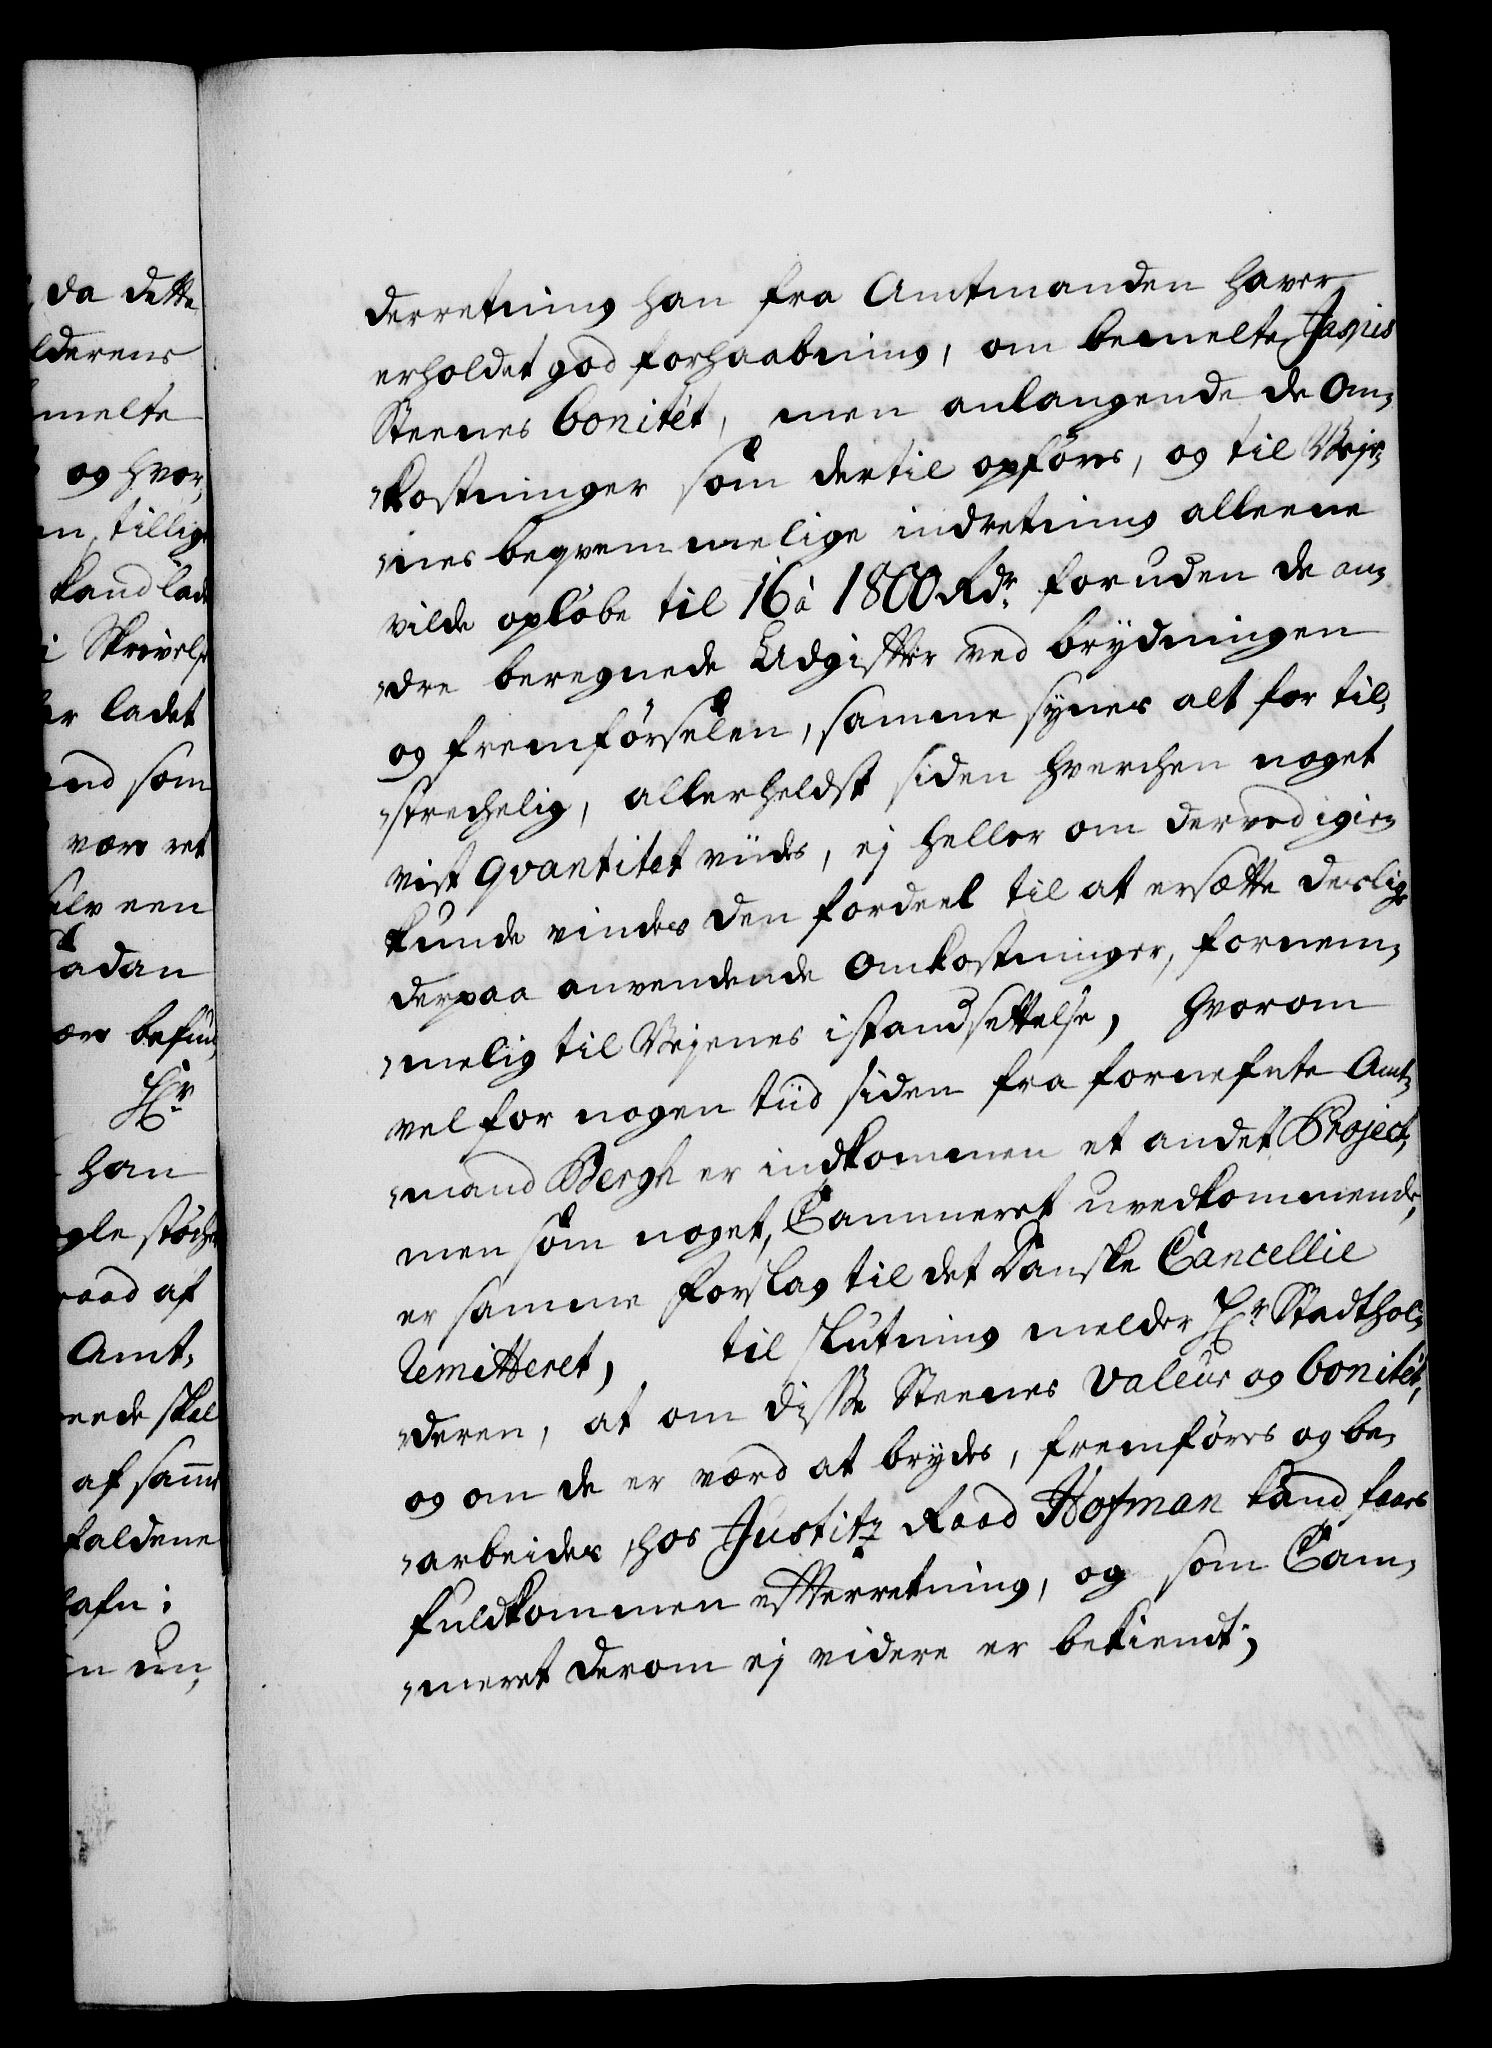 da dette
lderens
melte
og hvor,
en, tillige
kand lade
i Skrivelse
er ladet
and som
være ret
selv een
saadan
ære befun,
Hr
han
ogle stöcher
raad af
Amt,
eede skal
af samme
faldene
hafn;
en un,
derretning han fra Amtmanden haver
erholdet god forhaabning, om bemelte Jaspis
Steenes bonitét, men anlangende de om,
kostninger som dertil opføres, og til Vejr,
nes beqvemmelige indretning alleene
vilde opløbe til 16 à 1800 Rdr. foruden de an,
dre beregnede Udgifter ved brydningen
og fremførselen, samme synes alt for til,
strechelig, allerheldst siden hverchen noget
vist qvantitet viides, ej heller om derved igien
kunde vindes den fordeel til at ersætte deslige
derpaa anvendende omkostninger, fornem,
melig til Vejenes istandsettelse, hvorom
vel for nogen tiid siden fra fornefnte Amt,
mand Bergh er indkommen et andet Project,
men som noget, Cammeret uvedkommende,
er samme forslag til det Danske Cancellie
remitteret, til slutning melder Hr Stadthol,
deren, at om disse Steenes valeur og bonitét,
og om de er værd at brydes, fremføres og be,
arbeides, hos Justitz Raad Hofman kand faaes
fuldkommen efterretning, og som Cam,
meret derom ej videre er bekiendt,